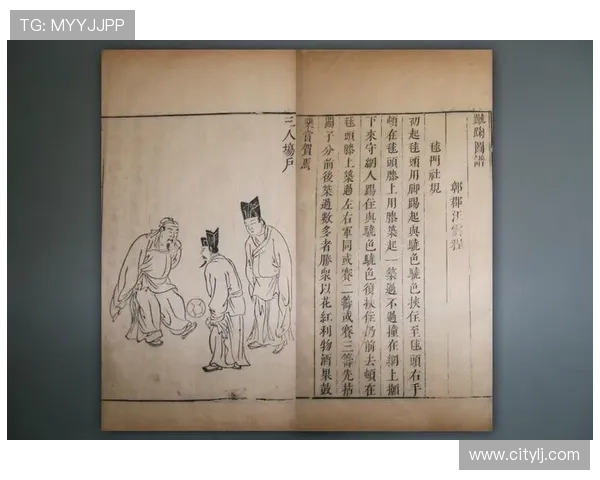 TG: MYYJJPP
蹴踘圖譜
郭郡汪雲程
毬門社規
初起毬頭用脚踢起與驍色驍色挾住至毬頭右手
頓在毬頭膝上用膝築起一築過不過撞在網上顚
下來守網人踢住與驍色驍色復挾住仍前去頓在
毬頭膝上築過左右軍同或賽二籌或賽三籌先拈
鬮子分前後築過數多者勝衆以花紅利物酒果鼓
樂賞賀焉
三人場戶
www.citylj.com